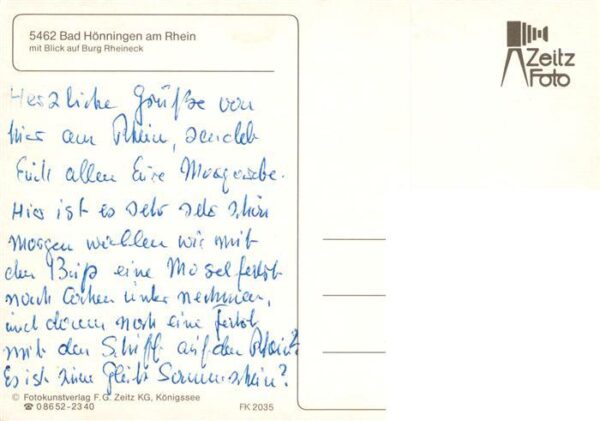 5462 Bad Hönningen am Rhein
mit Blick auf Burg Rheineck
Zeitz
Foto
Herzliche Grüße von
hier am Rhein, sendet
Euch allen Eure
Hier ist es sehr sehr schön
Morgen wollen wir mit
den Buß eine Moselfahrt
nach Cochem unter nehmen,
und dann noch eine Fahrt
mit den Schiff auf den Rhein?
Es ist Sonnenschein?
© Fotokunstverlag F. G. Zeitz KG, Königssee
☎ 0 86 52 - 23 40
FK 2035